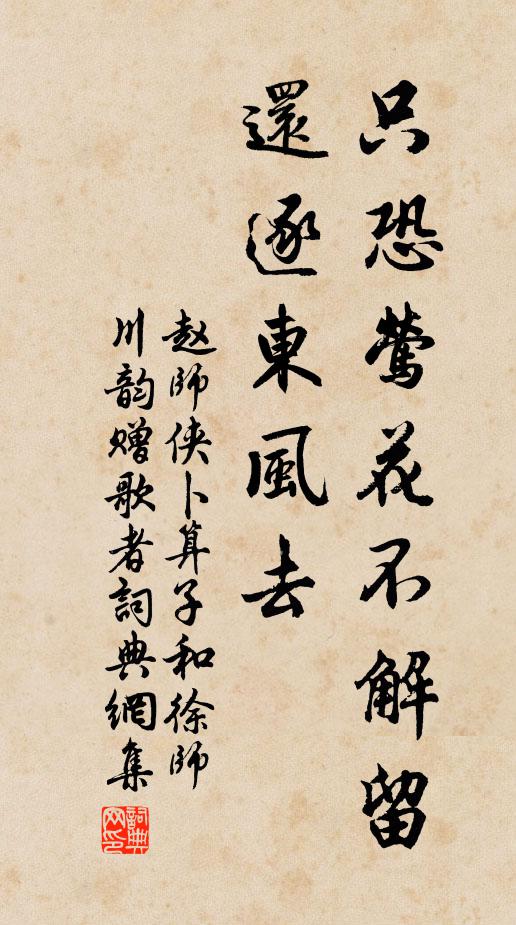 只恐鶯花不解留
還逐東風去
赵師侠卜算子和徐師
川韵赠歌者詞典網集
詞典
网印